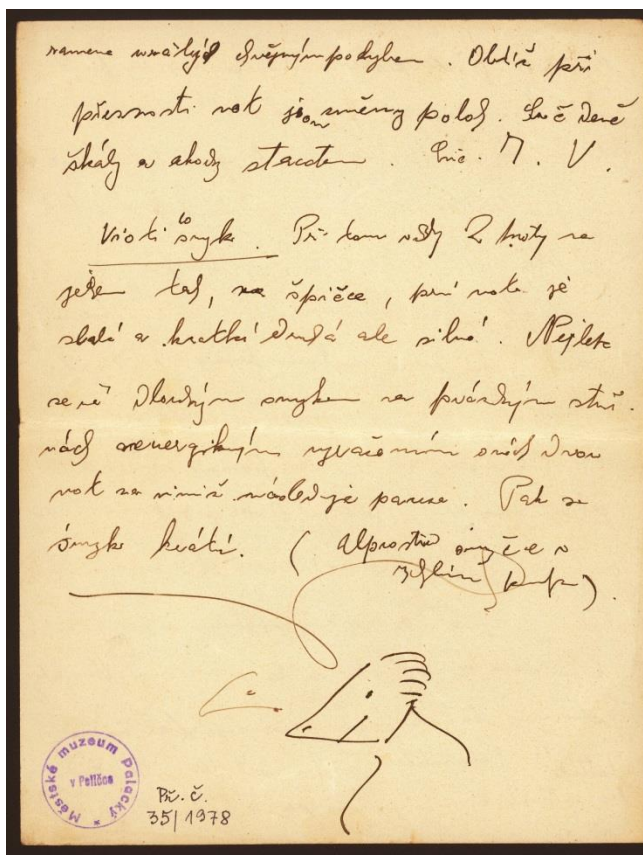 ramene chvějným pohybem. Obtíž při
přesnosti not jsou změny poloh. Cvičení
škály a akordy staccatem. Cvič. 7. V.
Viotiho smyk. Při tom vždy 2 noty na
jeden tah, na špičce, první nota je
slabá a krátká druhá ale silná. Nejlépe
se cvičí dlouhým smykem na prázdných stru-
nách energickým oněch dvou
not za nimiž následuje pauza. Pak se
smyk krátí. ( smyčce
Městské muzeum Palacký
v Poličce
Př. č.
35/1978